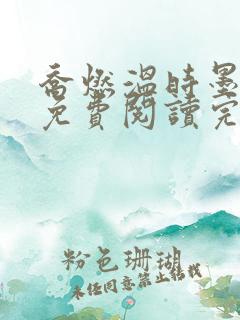 喬燃溫時墨
免費閱讀完
粉色珊瑚
未经同意禁止转载